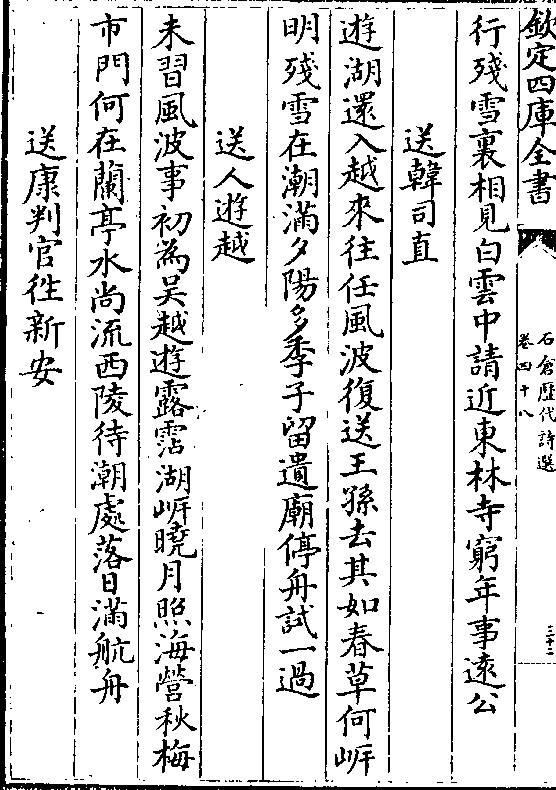 欽定四庫全書
石倉歷代詩選
卷四十八
三十二
行殘雪裏相見白雲中請近東林寺窮年事遠公
送韓司直
遊湖還入越來往任風波復送王孫去其如春草何岍
明殘雪在潮滿夕陽多季子留遺廟停舟試一過
送人遊越
未習風波事初為吳越遊露霑湖岍曉月照海營秋梅
市門何在蘭亭水尚流西陵待潮處落日滿航舟
送康判官往新安